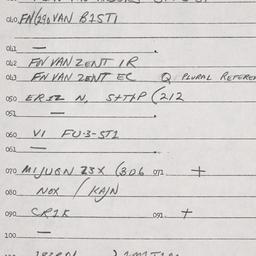 040. FN(290 VAN B1ST1
041 —
042 FN VAN ZENT IR
043 FN VAN ZENT EC Q PLURAL REFEREN
050 ERIZ N, S+T+P (212
051 —
060 VI FU-3-ST1
061 —
070 MIJUGN 23X (306 071 +
080 NOX / KAJN
090 CR1K 091 +
100 —